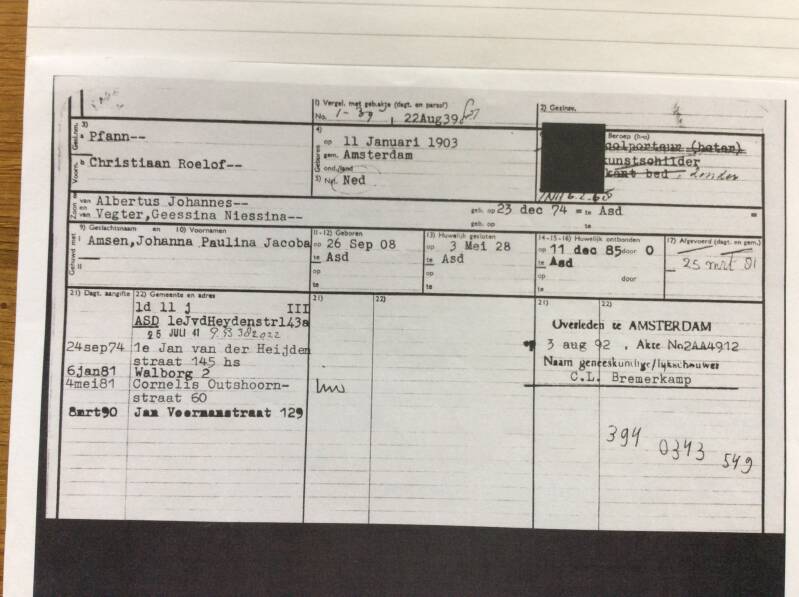 1) Vergel. met geb.akje (dagt. en paraaf)
No. 1-B9, 22Aug39
2) Gezinsv.
Gesl.nm. 3)
a Pfann--
Voorn. b Christiaan Roelof--
Geboren 4)
op 11 Januari 1903
gem. Amsterdam
ond./land
5) Nat. Ned
Beroep (h-o)
colporteur (boter)
kunstschilder
kant bed, zonder
6.2.68
Zoon van Albertus Johannes--
en van Vegter, Geessina Niessina--
geb. op 23 dec 74 = te Asd =
Gehuwd met 9) Geslachtsnaam en 10) Voornamen
I Amsen, Johanna Paulina Jacoba
II
11-12) Geboren
op 26 Sep 08
te Asd
op
te
13) Huwelijk gesloten
op 3 Mei 28
te Asd
op
te
14-15-16) Huwelijk ontbonden
op 11 dec 85 door O
te Asd
op door
te
17) Afgevoerd (dagt. en gem.)
25 mrt 81
21) Dagt. aangifte 22) Gemeente en adres
ld ll j III
ASD 1eJvdHeydenstr143a
25 JULI 41 9.33 382022
24sep74 1e Jan van der Heijden
straat 145 hs
6jan81 Walborg 2
4mei81 Cornelis Outshoorn-
straat 60
8mrt90 Jan Voermanstraat 129
21) 22)
21) 22)
Overleden te AMSTERDAM
3 aug 92, Akte No2AA4912
Naam geneeskundige/lijkschouwer
C.L. Bremerkamp
394 0343 549